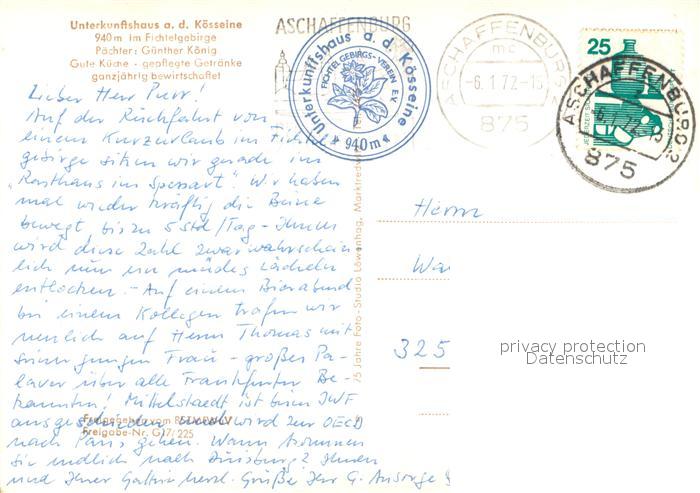 Unterkunftshaus a. d. Kösseine
940m im Fichtelgebirge
Pächter: Günther König
Gute Küche - gepflegte Getränke
ganzjährig bewirtschaftet
ASCHAFFENBURG
Unterkunftshaus a. d. Kösseine
FICHTELGEBIRGS-VEREIN E.V.
940m
ASCHAFFENBURG 2
mc
-6.1.72-13
875
25
ASCHAFFENBURG 2
-6.1.72-13
875
Lieber Herr
Auf der Rückfahrt von
einem Kurzurlaub im Fichtel
gebirge sitzen wir gerade im
„Rasthaus im Spessart". Wir haben
mal wieder kräftig die Beine
bewegt, bis zu 5 Std/Tag - Ihnen
wird diese Zahl zwar wahrschein
lich nur ein müdes Lächeln
entlocken. - Auf einem Bierabend
bei einem Kollegen trafen wir
neulich auf Herrn Thomas mit
seiner jungen Frau - großes Pa-
laver über alle Frankfurter Be-
kannten! Mittelstaedt ist beim IWF
ausgeschieden und wird zur OECD
nach Paris gehen. Wann kommen
Sie endlich nach Duisburg? Ihnen
und Ihrer Gattin herzl. Grüße Ihr G. Ansorge
Freigegeben vom
Freigabe-Nr. G17/225
75 Jahre Foto-Studio Löwenhag, Marktredwitz
Herrn
325
privacy protection
Datenschutz